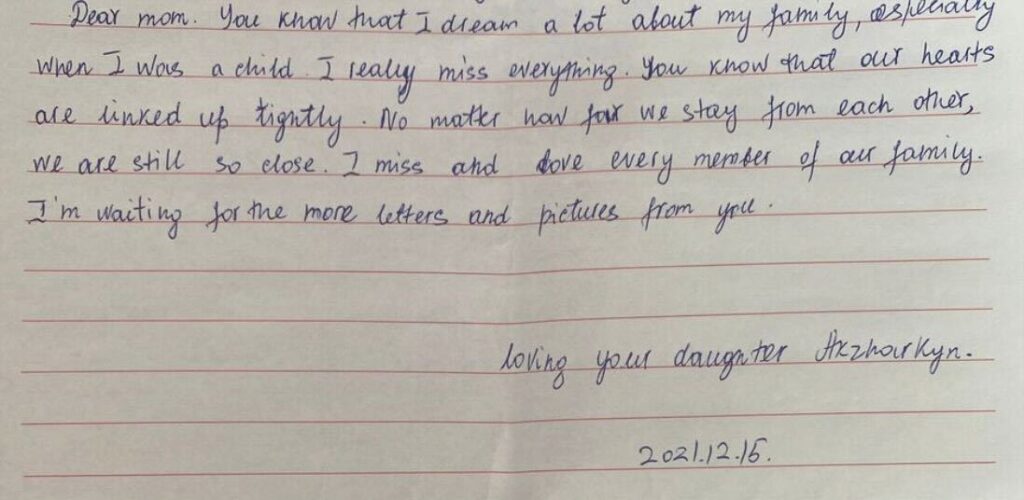 Dear mom. You know that I dream a lot about my family, especially
when I was a child. I really miss everything. You know that our hearts
are linked up tightly. No matter how far we stay from each other,
we are still so close. I miss and love every member of our family.
I'm waiting for the more letters and pictures from you.
loving your daughter Axzharkyn.
2021.12.15.